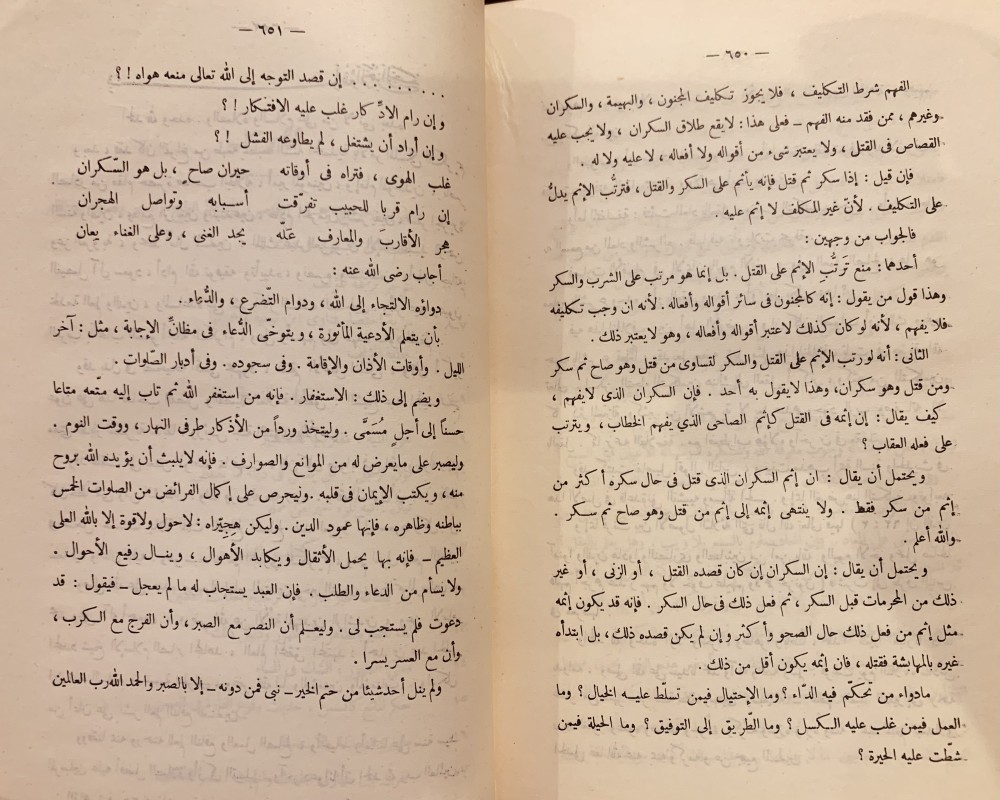 — ٦٥٠ —
الفهم شرط التكليف ، فلا يجوز تكليف المجنون ، والبهيمة ، والسكران
وغيرهم ، ممن فقد منه الفهم – فعلى هذا : لا يقع طلاق السكران ، ولا يجب عليه
القصاص فى القتل ، ولا يعتبر شىء من أقواله ولا أفعاله ، لا عليه ولا له .
فإن قيل : إذا سكر ثم قتل فإنه يأثم على السكر والقتل ، فترتُّب الإثم يدلُّ
على التكليف . لأنّ غير المكلف لا إثم عليه .
فالجواب من وجهين :
أحدهما : منع تَرَتُّبِ الإثم على القتل . بل إنما هو مرتب على الشرب والسكر
وهذا قول من يقول : إنه كالمجنون فى سائر أقواله وأفعاله . لأنه ان وجب تكليفه
فلا يفهم ، لأنه لو كان كذلك لاعتبر أقواله وأفعاله ، وهو لا يعتبر ذلك .
الثانى : أنه لو رتب الإثم على القتل والسكر لتساوى من قتل وهو صاح ثم سكر
ومن قتل وهو سكران، وهذا لا يقول به أحد . فإن السكران الذى لا يفهم ،
كيف يقال : إن إثمه فى القتل كإثم الصاحى الذي يفهم الخطاب ، ويترتب
على فعله العقاب ؟
ويحتمل أن يقال : ان إثم السكران الذى قتل فى حال سكره أكثر من
إثم من سكر فقط . ولا ينتهى إثمه إلى إثم من قتل وهو صاح ثم سكر .
والله أعلم .
ويحتمل أن يقال : إن السكران إن كان قصده القتل ، أو الزنى ، أو غير
ذلك من المحرمات قبل السكر ، ثم فعل ذلك فى حال السكر . فإنه قد يكون إثمه
مثل إثم من فعل ذلك حال الصحو وأكثر وإن لم يكن قصده ذلك، بل ابتدأه
غيره بالمهايشة فقتله ، فان إثمه يكون أقل من ذلك .
مادواء من تحكّم فيه الدّاء ؟ وما الإحتيال فيمن تسلّط عليه الخيال ؟ وما
العمل فيمن غلب عليه الكسل ؟ وما الطّريق إلى التوفيق ؟ وما الحيلة فيمن
شطّت عليه الحيرة ؟
— ٦٥١ —
. . . . . . . . . إن قصد التوجه إلى الله تعالى منعه هواه ! ؟
وإن رام الادِّكار غلب عليه الافتكار ! ؟
وإن أراد أن يشتغل ، لم يطاوعه الفشل ! ؟
غلب الهوى ، فتراه فى أوقاته حيران صاح ٍ، بل هو السّكران
إن رام قربا للحبيب تفرّقت أسبابه وتواصل الهجران
هجر الأقاربَ والمعارف عَلّه يجد الغنى ، وعلى الغناء يعان .
أجاب رضى الله عنه :
دواؤه الالتجاء إلى الله ، ودوام التّضرع ، والدُّعاء .
بأن يتعلم الأدعية المأثورة ، ويتوخّى الدُّعاء فى مظانِّ الإجابة ، مثل : آخر
الليل . وأوقات الأذان والإقامة . وفى سجوده . وفى أدبار الصّلوات .
ويضم إلى ذلك : الاستغفار . فإنه من استغفر الله ثم تاب إليه متّعه متاعا
حسنًا إلى أجلٍ مُسَمًّى . وليتخذ ورداً من الأذكار طرفى النهار ، ووقت النوم .
وليصبر على ما يعرض له من الموانع والصوارف . فإنه لا يلبث أن يؤيده الله بروح
منه ، ويكتب الإيمان فى قلبه . وليحرص على إكمال الفرائض من الصلوات الخمس
بباطنه وظاهره ، فإنها عمود الدين . وليكن هِجِّيْراه : لاحول ولا قوة إلا بالله العلى
العظيم – فإنه بها يحمل الأثقال ويكابد الأهوال ، وينال رفيع الأحوال .
ولا يسأم من الدعاء والطلب . فإن العبد يستجاب له ما لم يعجل – فيقول : قد
دعوت فلم يستجب لى . وليعلم أن النصر مع الصبر ، وأن الفرج مع الكرب ،
وأن مع العسر يسرا !
ولم ينل أحد شيئا من حتم الخير – نبى فمن دونه – إلا بالصبر والحمد الله رب العالمين